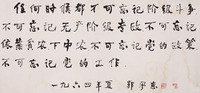 任何时候都不可忘记阶级斗争
不可忘记无产阶级专政不可忘记
依靠贫农下中农不可忘记党的政策
不可忘记党的工作
一九六四年夏 郭